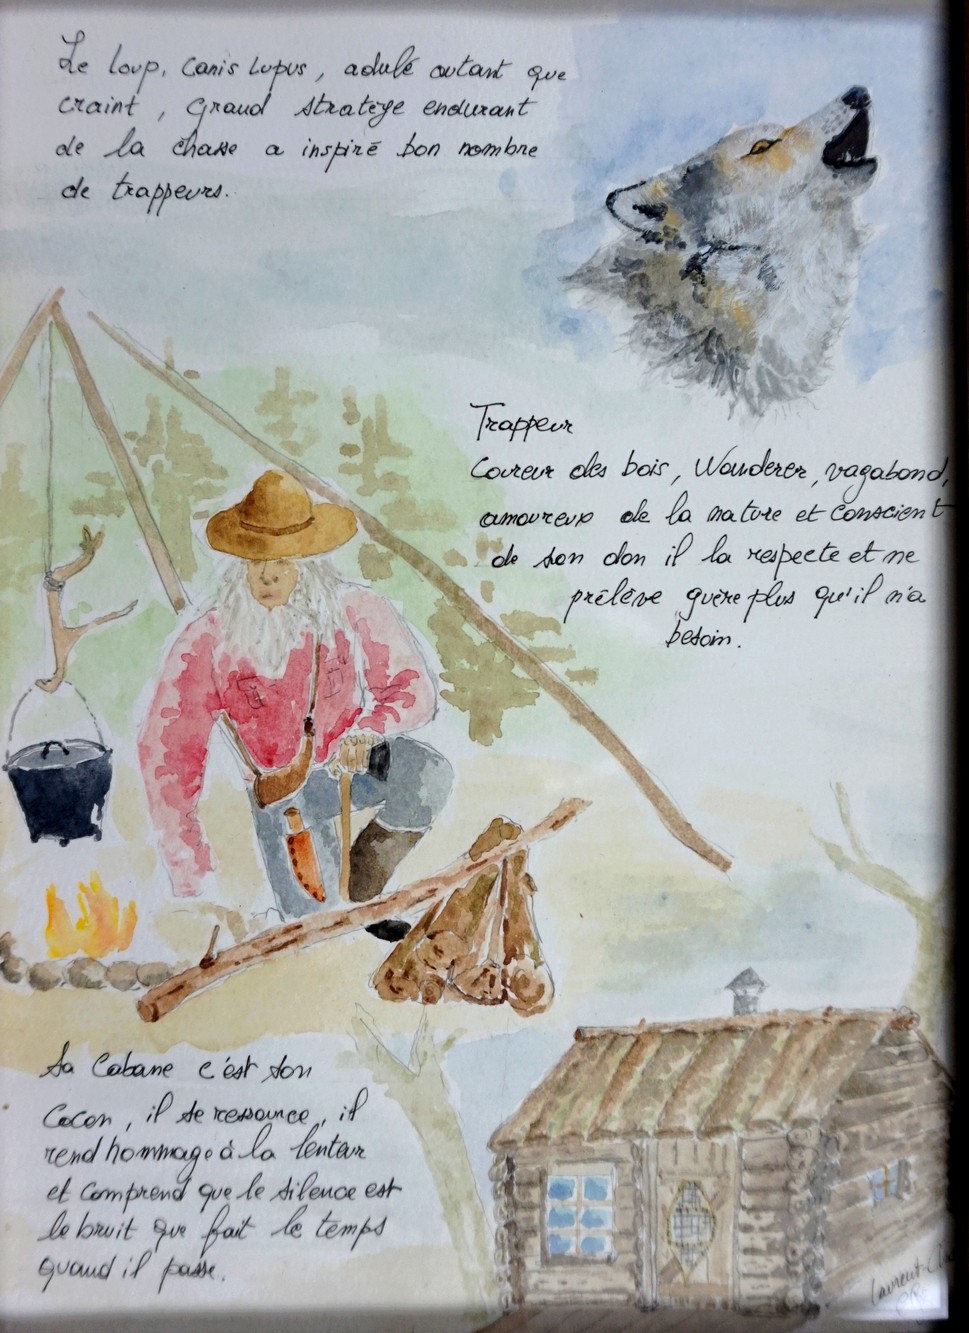 Le loup, canis lupus, adulé autant que
craint, grand stratège endurant
de la chasse a inspiré bon nombre
de trappeurs.
Trappeur
Coureur des bois, Wanderer, vagabond,
amoureux de la nature et conscient
de son don il la respecte et ne
prélève guère plus qu'il n'a
besoin.
Sa Cabane c'est son
Cocon, il se ressource, il
rend hommage à la lenteur
et comprend que le silence est
le bruit que fait le temps
quand il passe.
Laurent